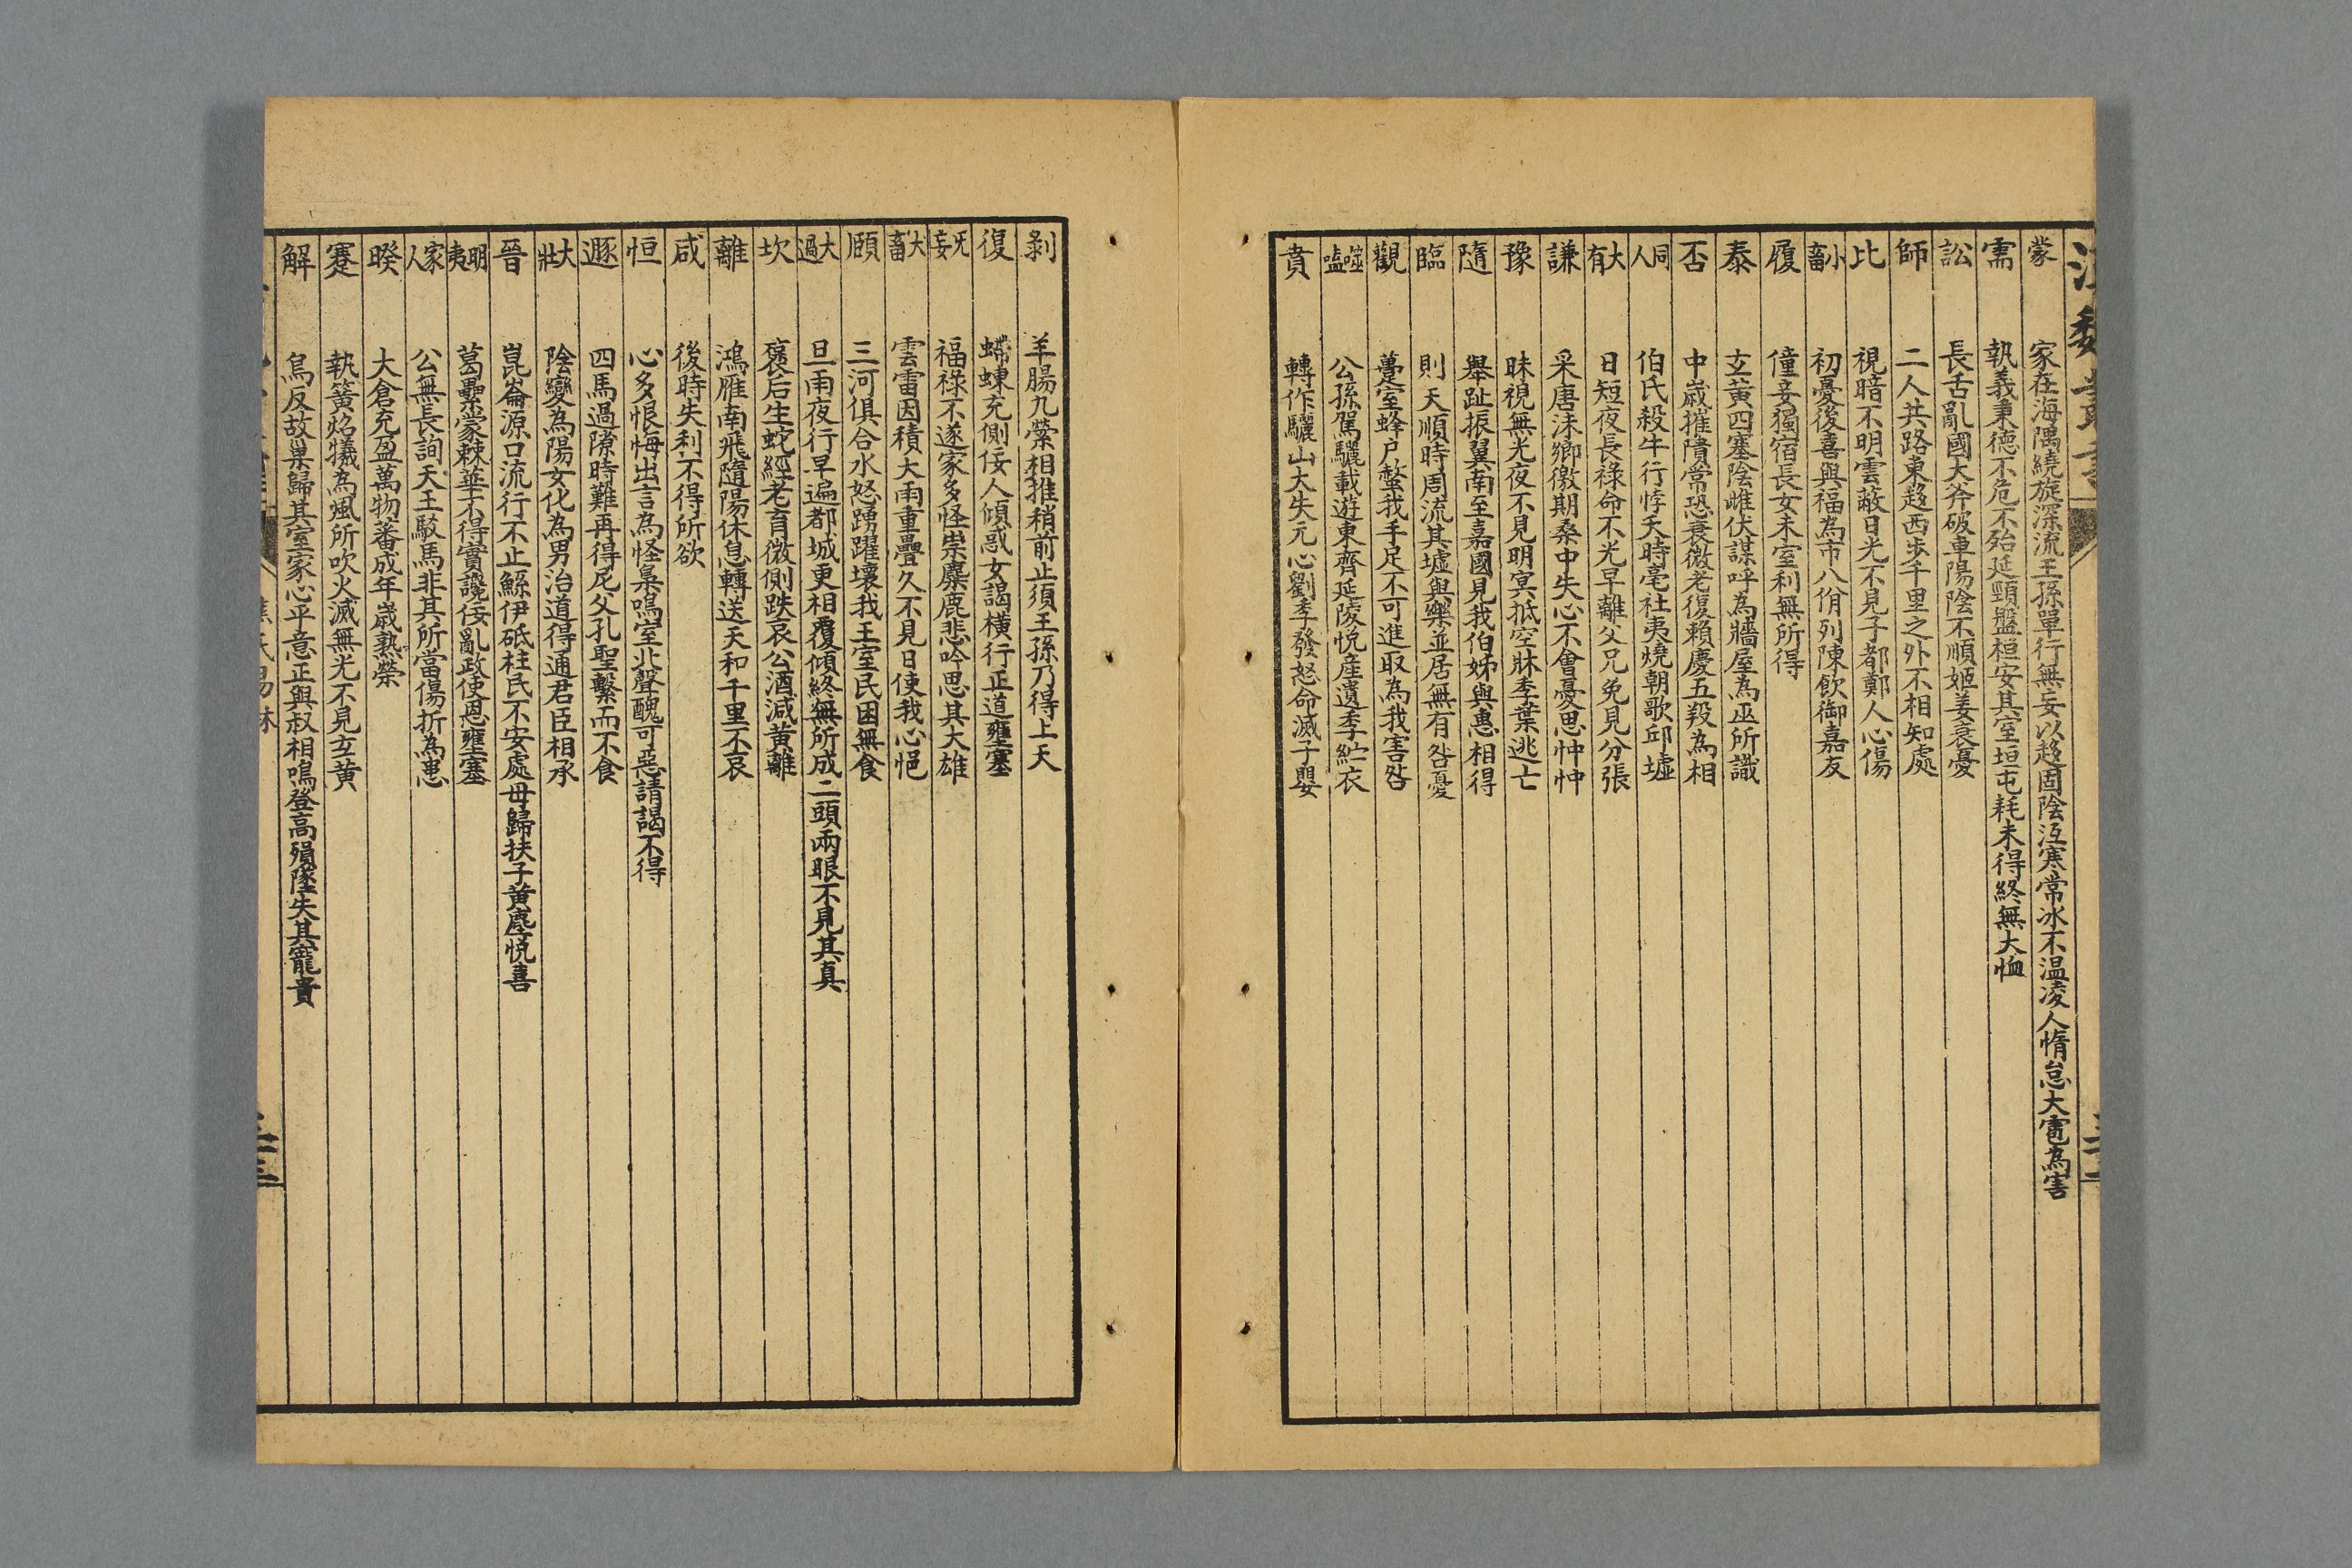 漢魏叢書
蒙 家在海隅繞旋深流王孫單行無妄以趍固陰沍寒常冰不温凌人惰怠大雹為害
需 執義秉德不危不殆延頸盤桓安其室垣屯耗未得終無大恤
訟 長舌亂國大斧破車陽陰不順姬姜衰憂
師 二人共路東趍西步千里之外不相知處
比 視暗不明雲蔽日光不見子都鄭人心傷
小畜 初憂後喜與福為市八佾列陳飲御嘉友
履 僮妾獨宿長女未室利無所得
泰 玄黃四塞陰雌伏謀呼為牆屋為巫所識
否 中歲摧隤常恐衰微老復賴慶五羖為相
同人 伯氏殺牛行悖天時亳社夷燒朝歌邱墟
大有 日短夜長祿命不光早離父兄免見分張
謙 采唐沬鄉徼期桑中失心不會憂思忡忡
豫 昧視無光夜不見明冥抵空牀季葉逃亡
隨 舉趾振翼南至嘉國見我伯姊與惠相得
臨 則天順時周流其墟與樂並居無有咎憂
觀 蠆室蜂户螫我手足不可進取為我害咎
噬嗑 公孫駕驪載遊東齊延陵悅産遺季紵衣
賁 轉作驪山大失元心劉季發怒命滅子嬰
剝 羊腸九縈相推稍前止須王孫乃得上天
復 蟏蝀充側佞人傾惑女謁橫行正道壅塞
无妄 福祿不遂家多怪祟麋鹿悲吟思其大雄
大畜 雲雷因積大雨重疊久不見日使我心悒
頤 三河俱合水怒踴躍壞我王室民困無食
大過 旦雨夜行早遍都城更相覆傾終無所成二頭兩眼不見其真
坎 褒后生蛇經老育微側跌哀公酒減黃離
離 鴻雁南飛隨陽休息轉送天和千里不哀
咸 後時失利不得所欲
恒 心多恨悔出言為怪梟鳴室北聲醜可惡請謁不得
遯 四馬過隙時難再得尼父孔聖繫而不食
大壯 陰變為陽女化為男治道得通君臣相承
晉 崑崙源口流行不止鯀伊砥柱民不安處毋歸扶子黃麈悅喜
明夷 葛纍蒙棘華不得實讒佞亂政使恩壅塞
家人 公無長詢天王駁馬非其所當傷折為患
睽 大倉充盈萬物蕃成年歲熟榮
蹇 執簧炤犧為風所吹火滅無光不見玄黃
解 鳥反故巢歸其室家心平意正與叔相鳴登高殞墜失其寵貴
焦氏易林